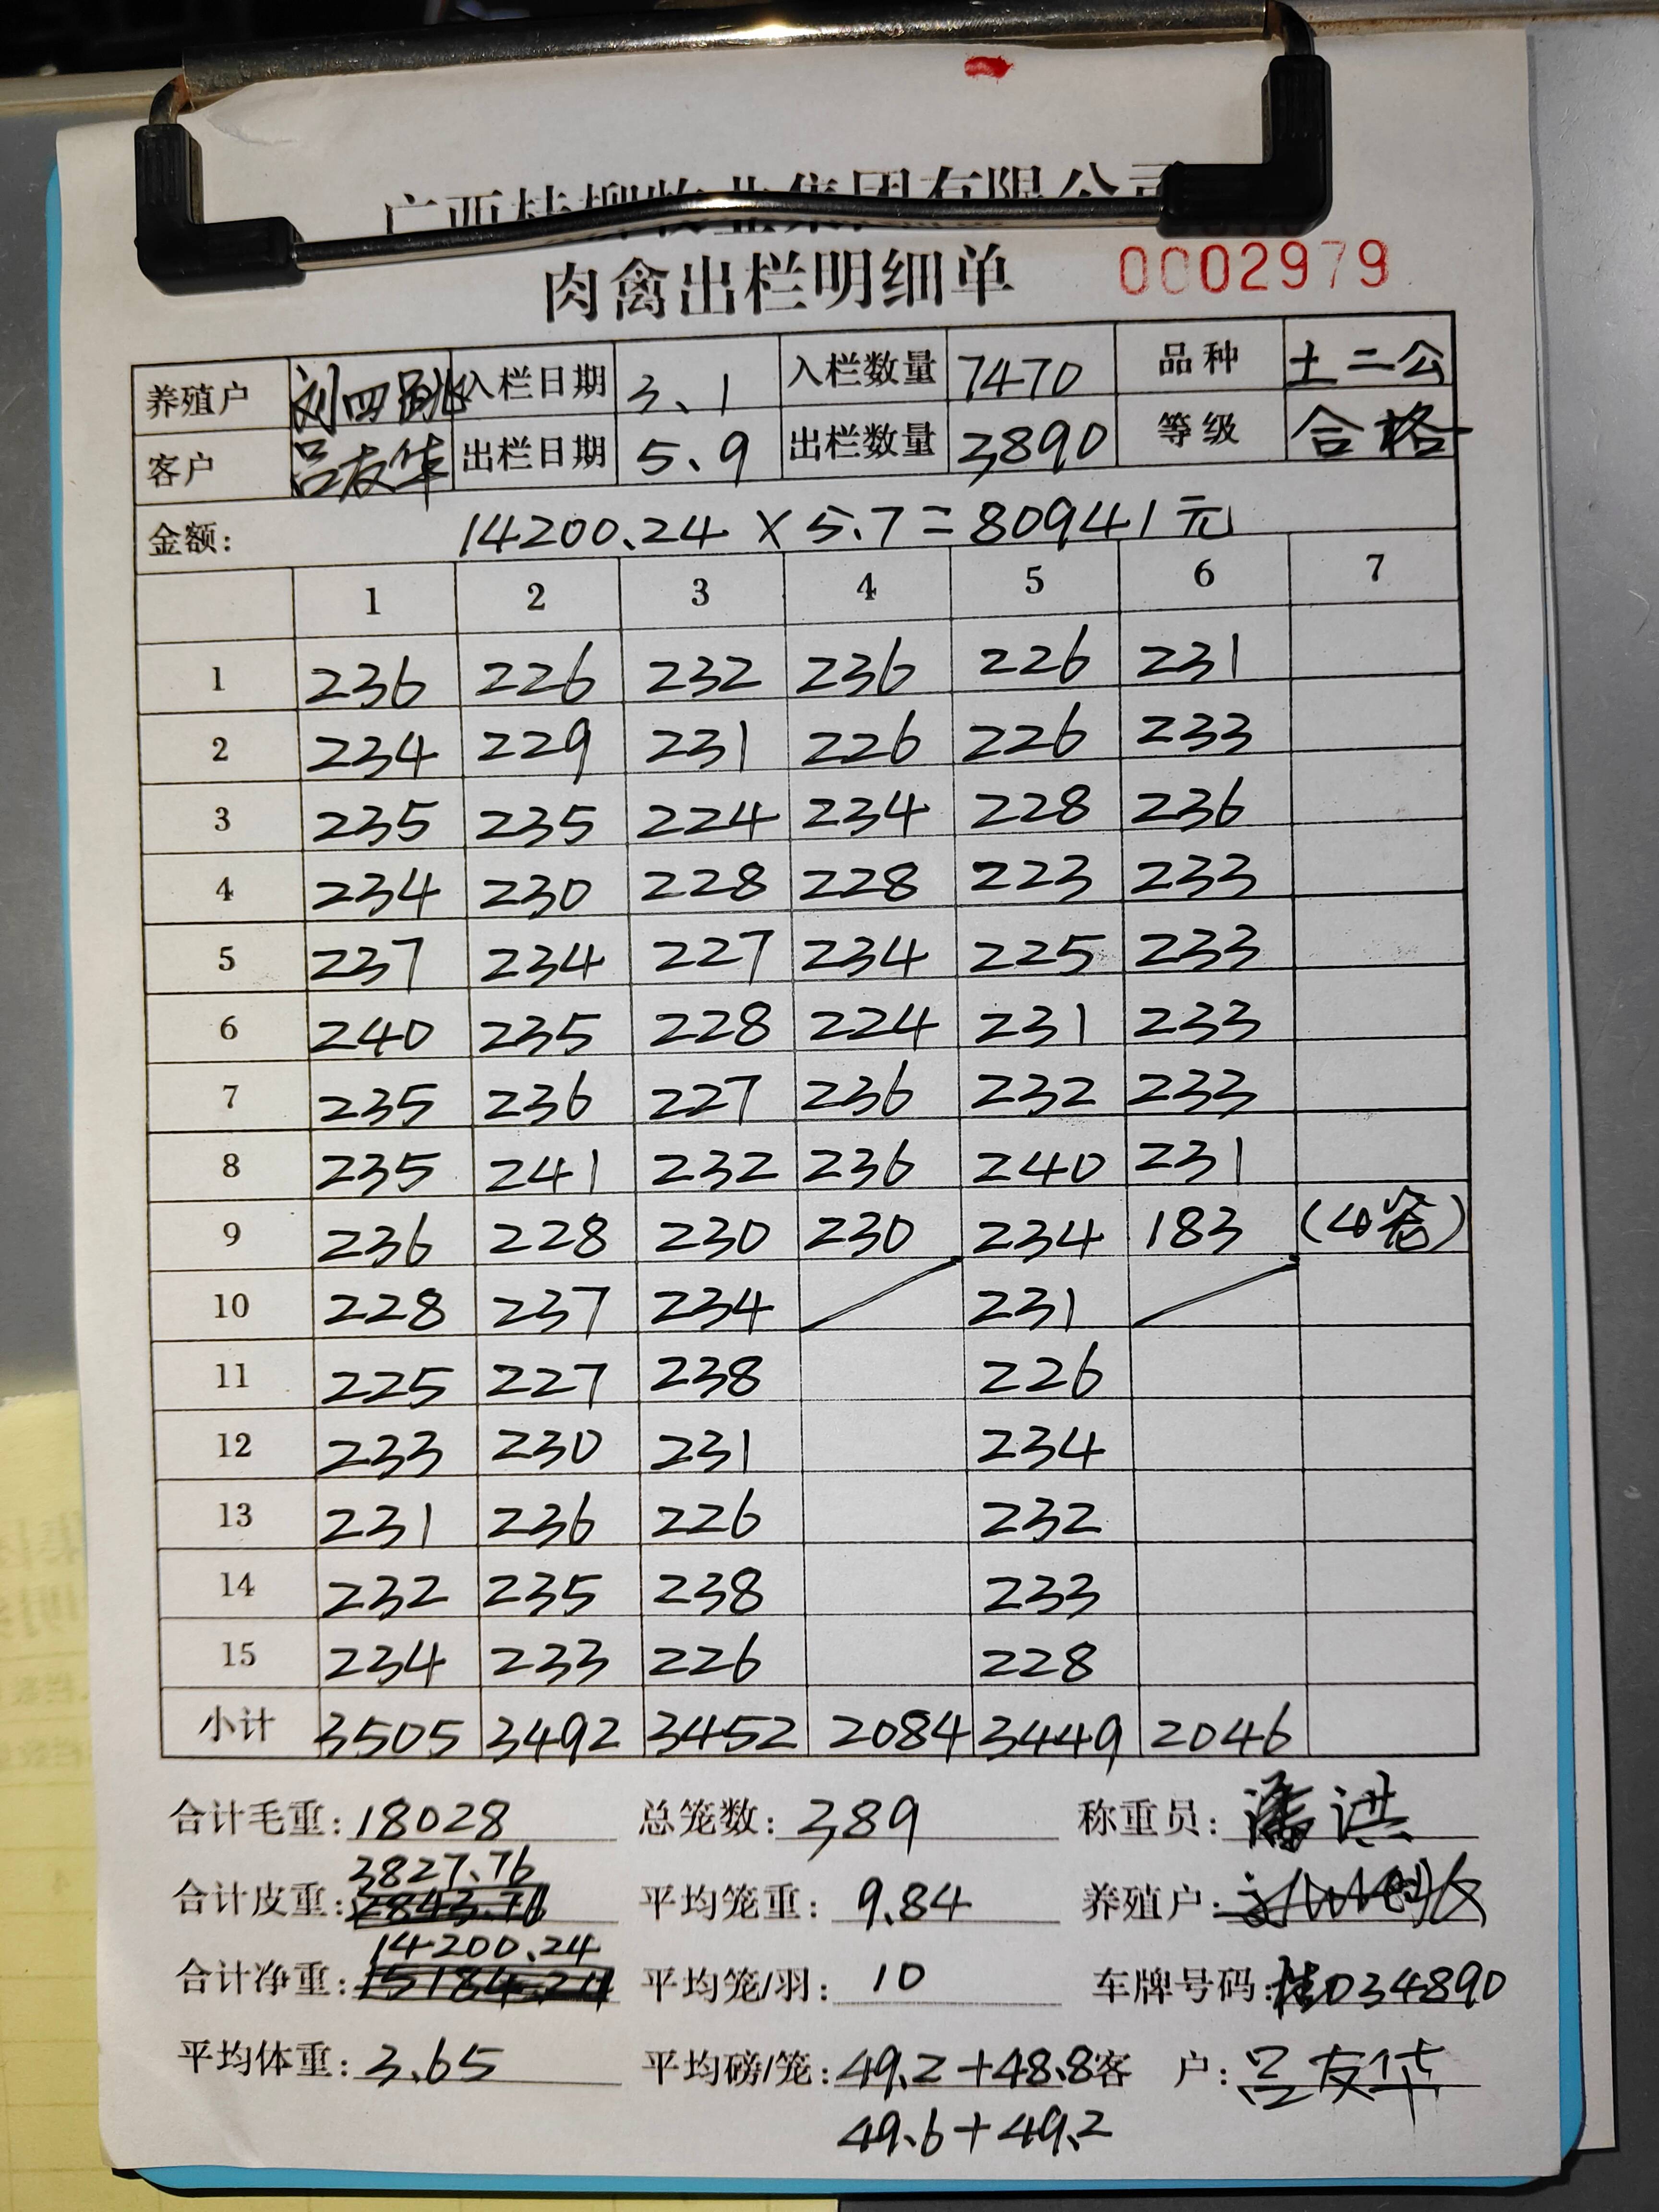 肉禽出栏明细单 0002979
养殖户 刘四 入栏日期 3.1 入栏数量 7470 品种 土二公
客户 吕友华 出栏日期 5.9 出栏数量 3890 等级 合格
金额: 14200.24 × 5.7 = 80941元
1 2 3 4 5 6 7
1 236 226 232 236 226 231
2 234 229 231 226 226 233
3 235 235 224 234 228 236
4 234 230 228 228 223 233
5 237 234 227 234 225 233
6 240 235 228 224 231 233
7 235 236 227 236 232 233
8 235 241 232 236 240 231
9 236 228 230 230 234 183 (40
10 228 237 234 231
11 225 227 238 226
12 233 230 231 234
13 231 236 226 232
14 232 235 238 233
15 234 233 226 228
小计 3505 3492 3452 2084 3449 2046
合计毛重: 18028 总笼数: 389 称重员: 潘洪
合计皮重: 3827.76 平均笼重: 9.84 养殖户:
合计净重: 14200.24 平均笼/羽: 10 车牌号码: 桂034890
平均体重: 3.65 平均磅/笼: 49.2+48.8 客户: 吕友华
49.6+49.2